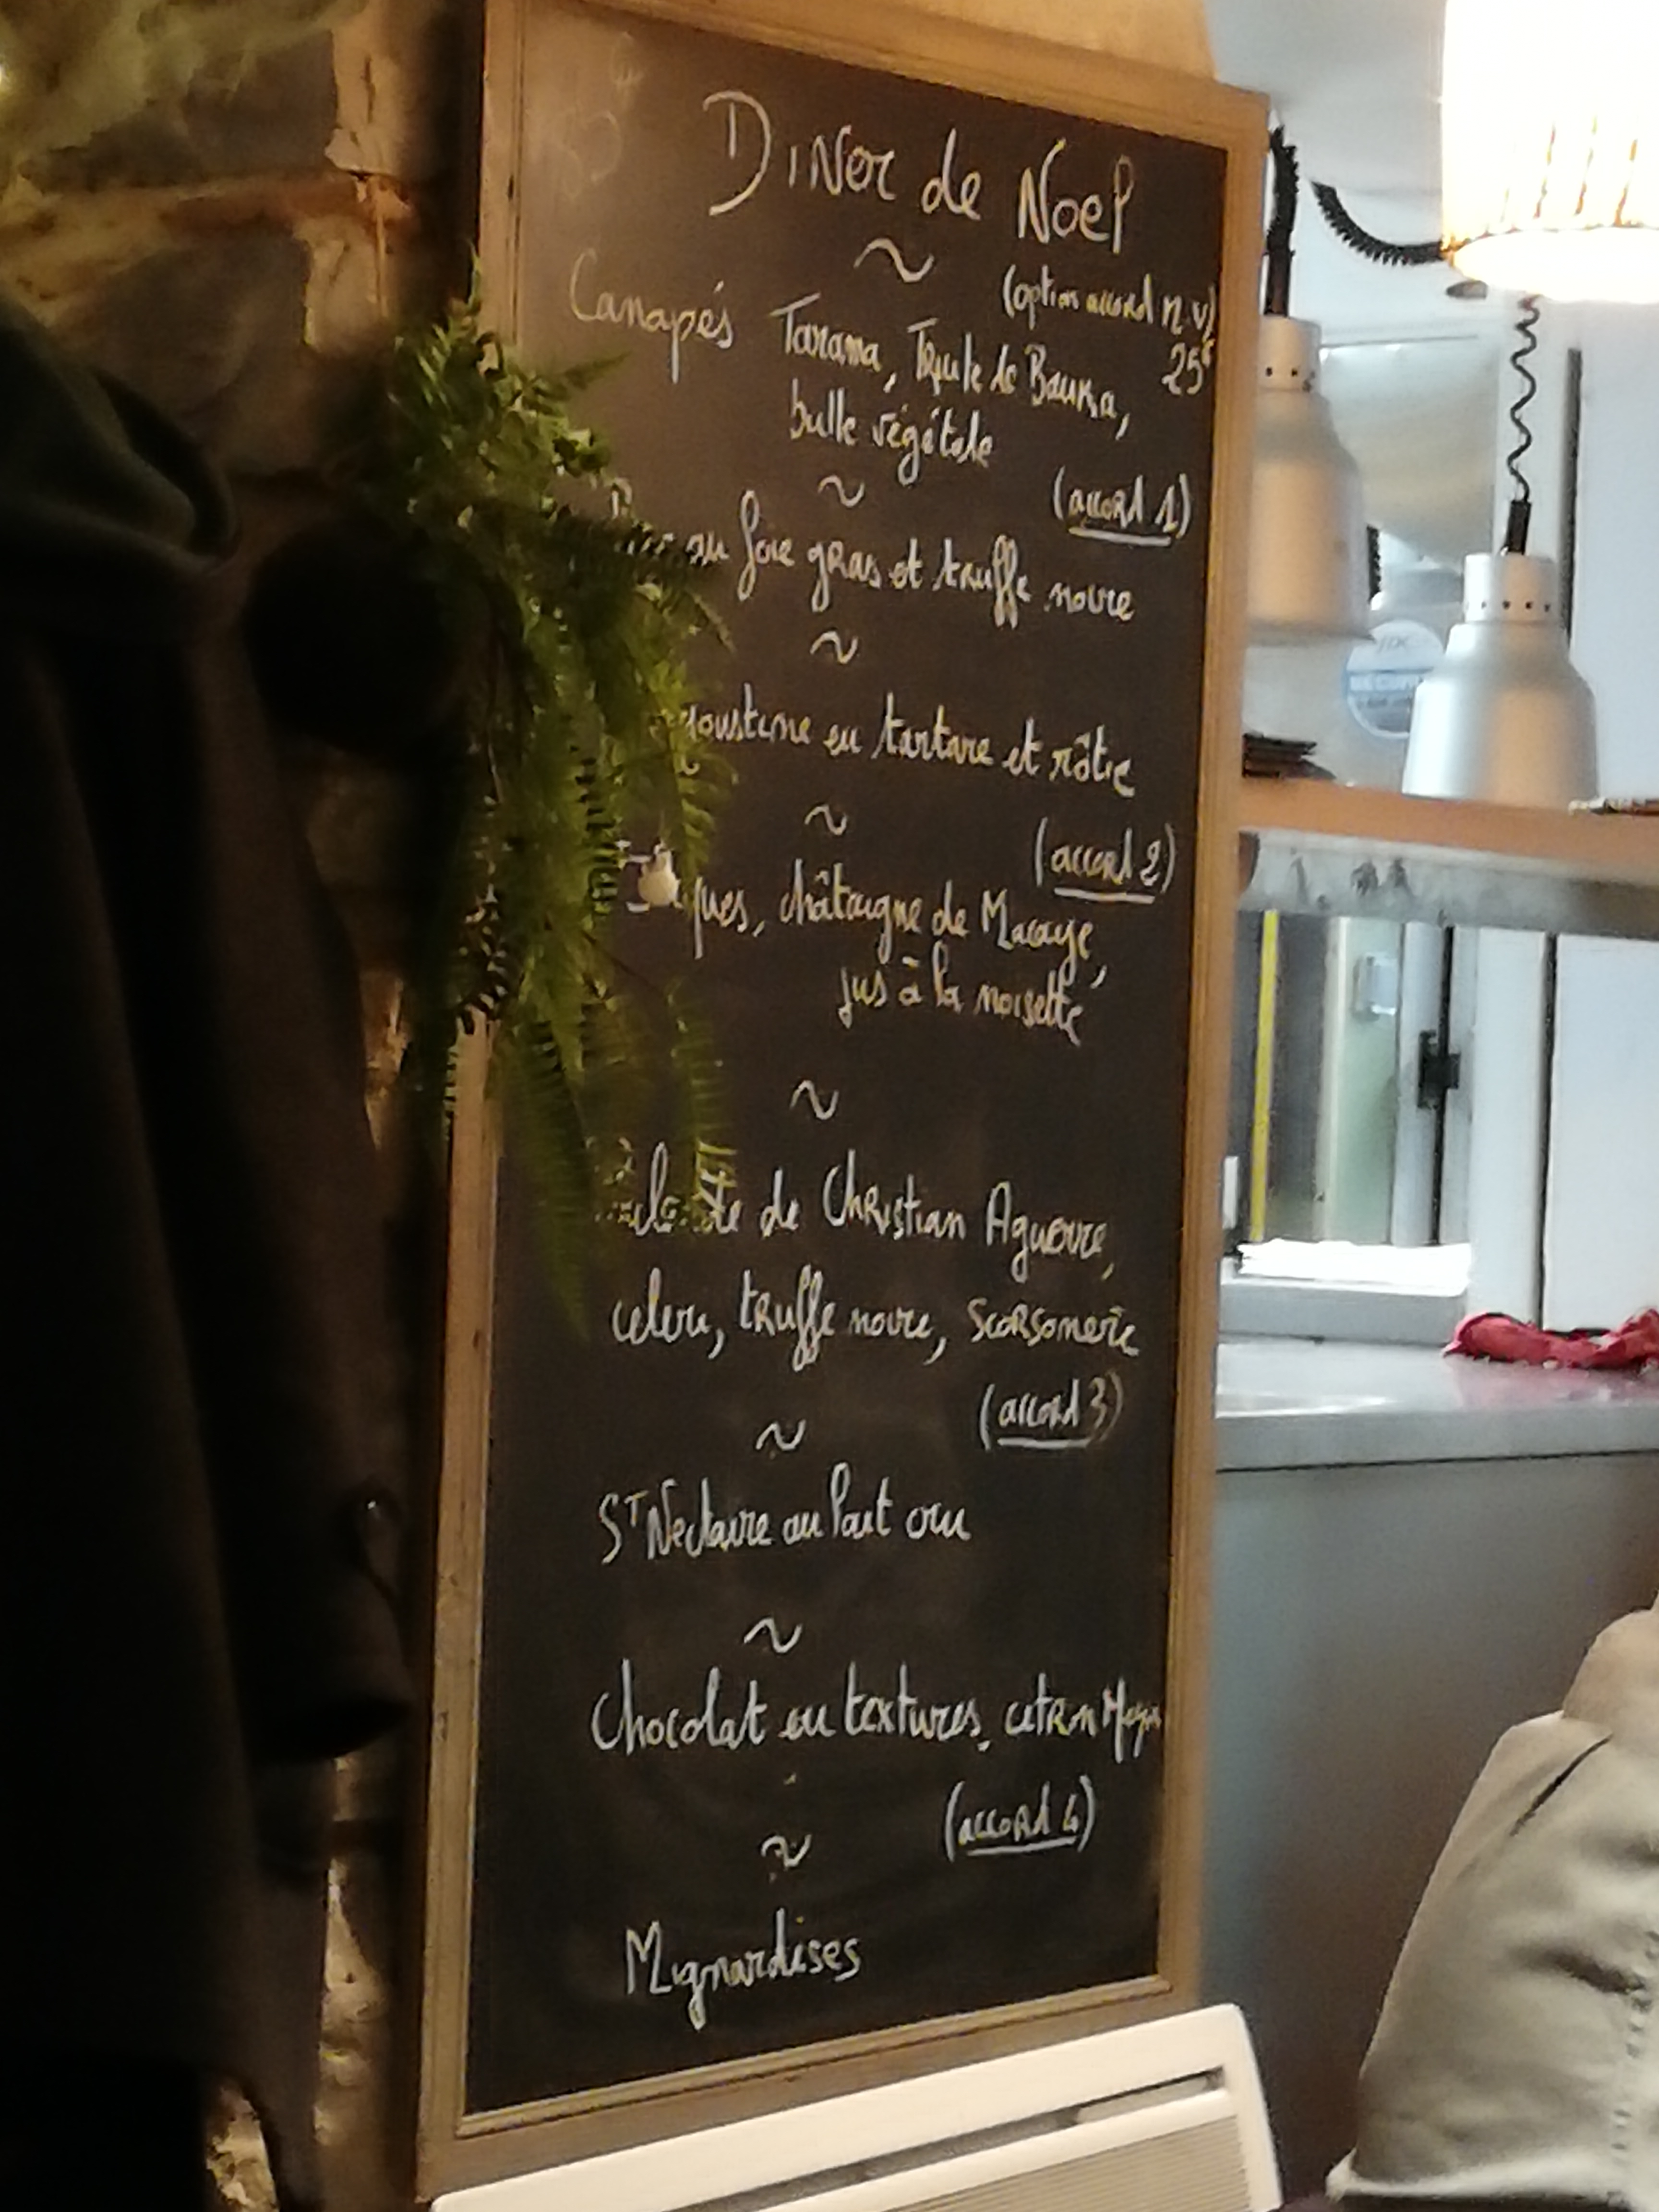 Diner de Noel
~
(option accord n.v)
25€
Canapés Tarama, Truite de Banka,
bulle végétale
~
(accord 1)
au foie gras et truffe noire
~
en tartare et rôtie
~
(accord 2)
châtaigne de Macaye,
jus à la noisette
~
de Christian Aguerre,
celeri, truffe noire, scorsonere
(accord 3)
~
St Nectaire au lait cru
~
Chocolat en textures, citron Meyer
(accord 4)
~
Mignardises